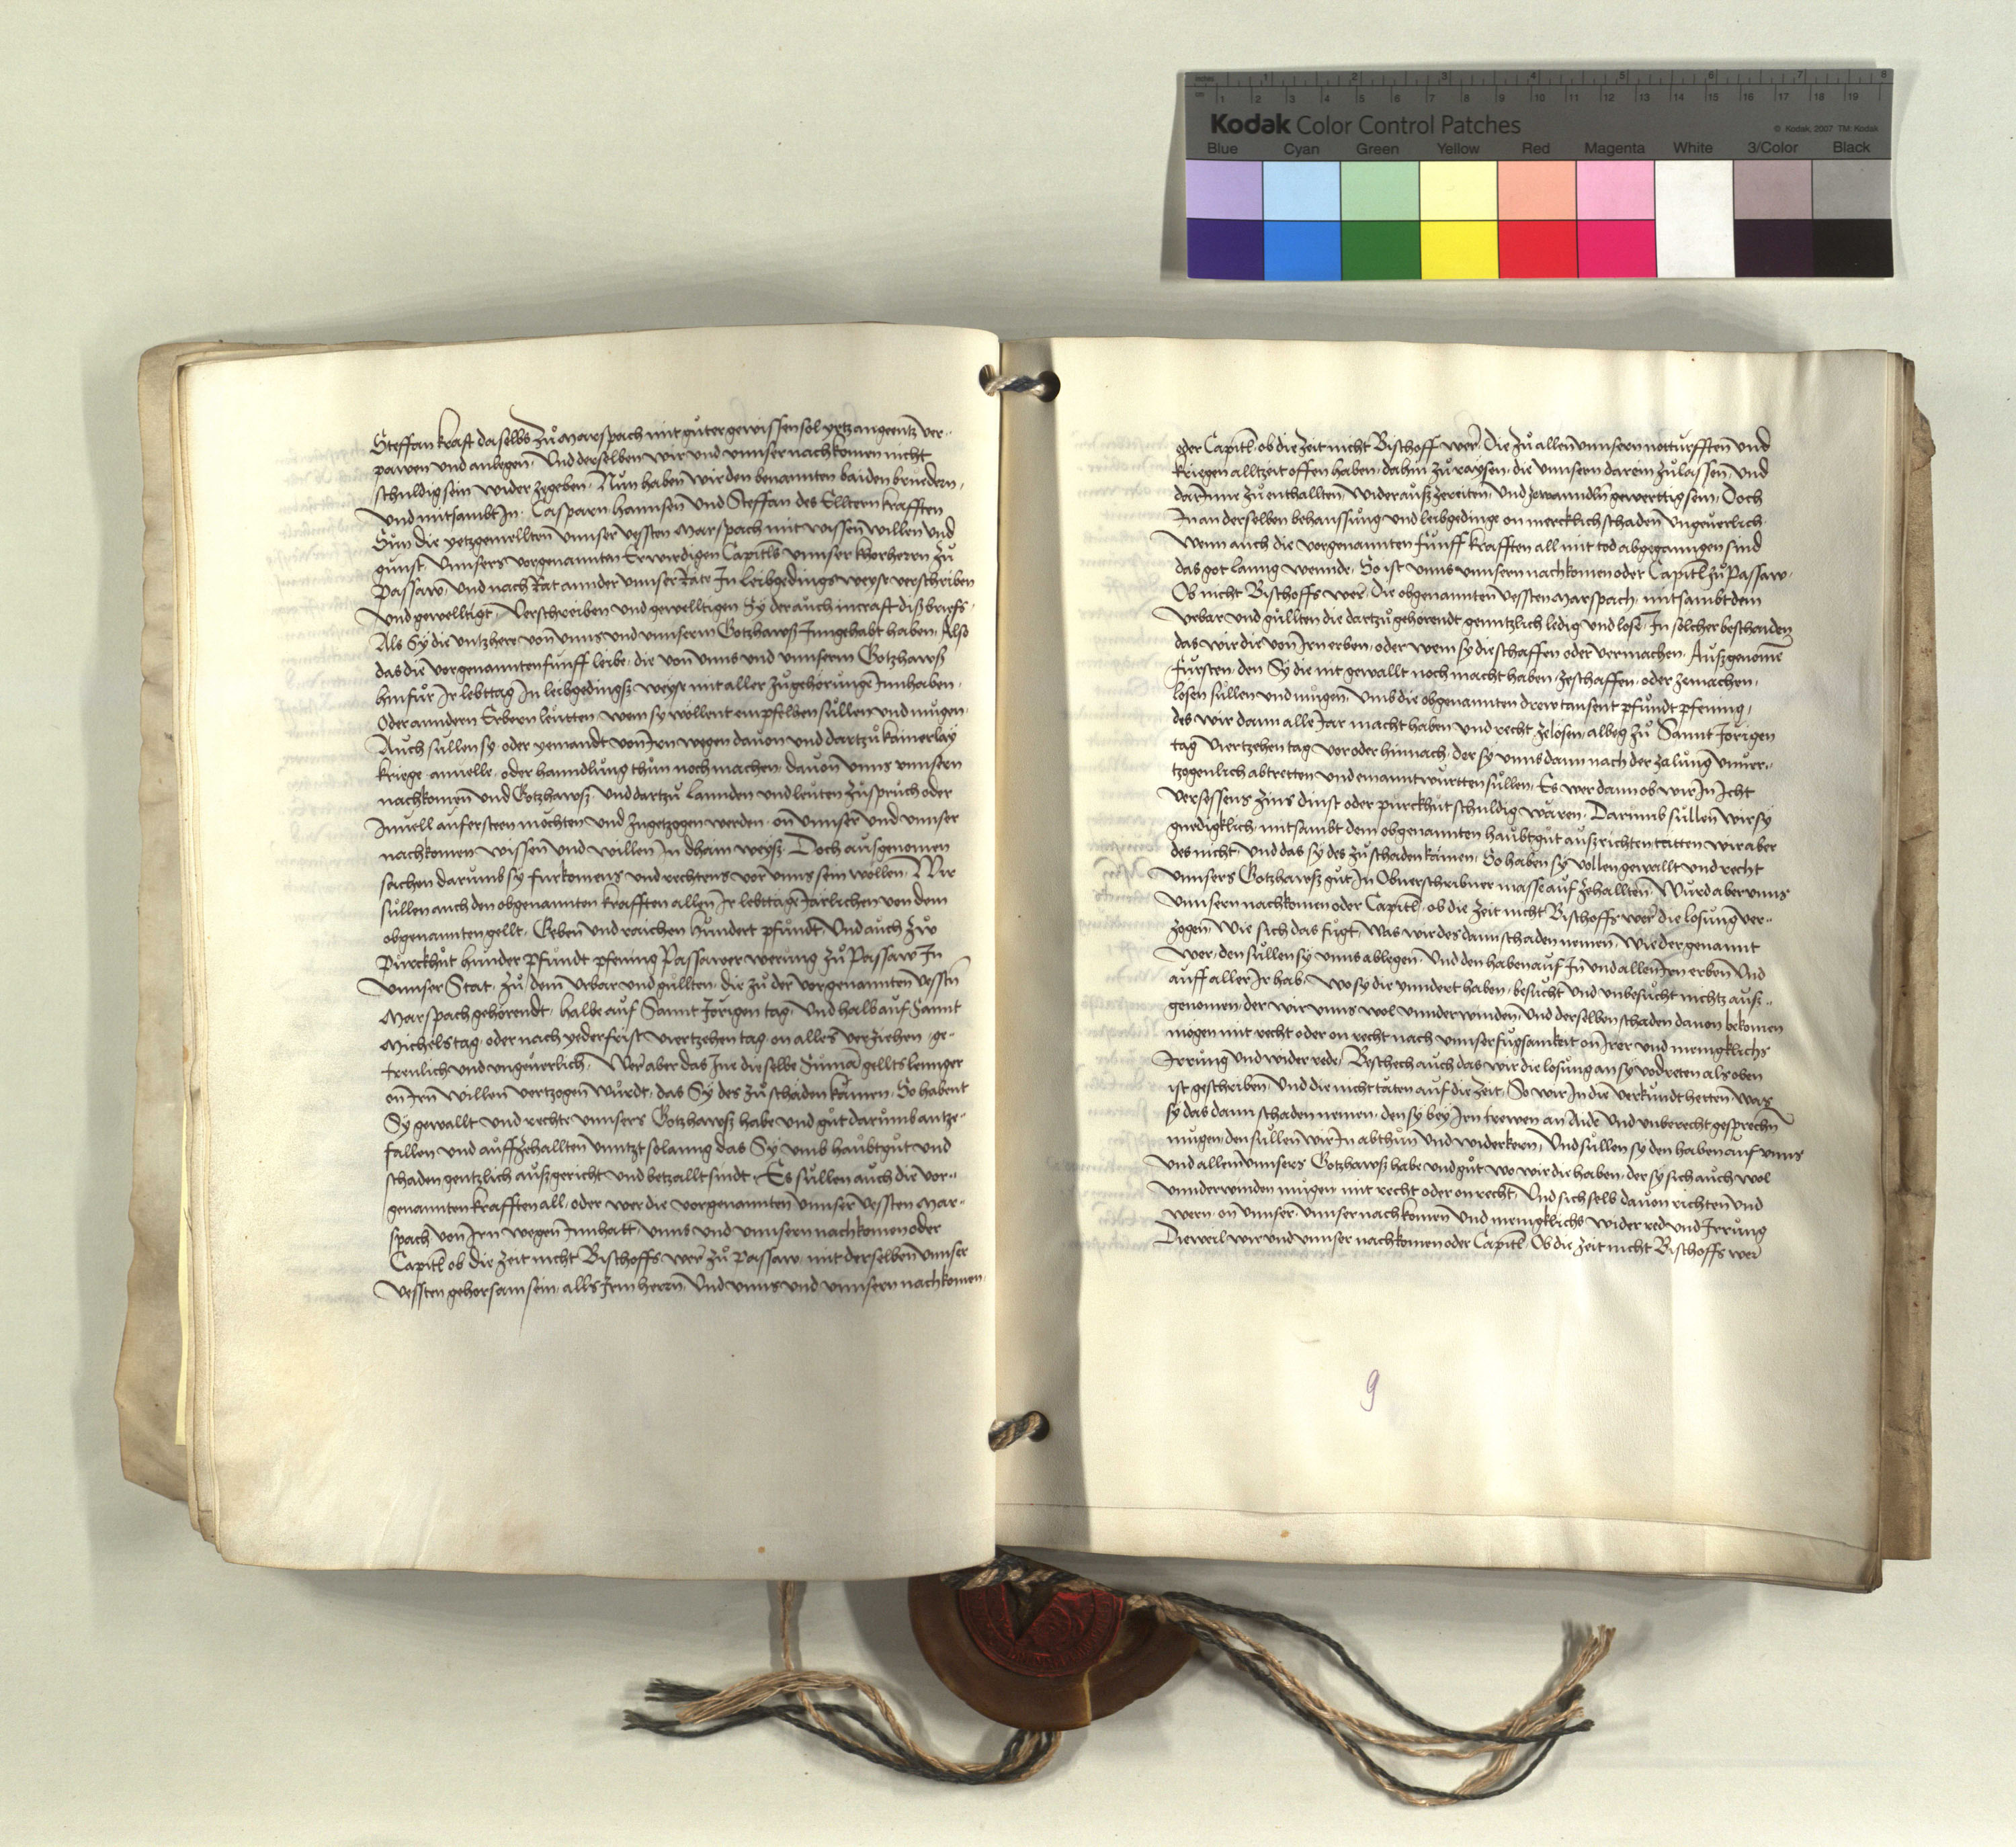 inches 1 2 3 4 5 6 7 8
cm 1 2 3 4 5 6 7 8 9 10 11 12 13 14 15 16 17 18 19
Kodak Color Control Patches © Kodak, 2007 TM: Kodak
Blue Cyan Green Yellow Red Magenta White 3/Color Black
Steffan kraft daselbs zů Marspach mit gůter gewissen sol yetz angeentz ver-
pawen und anlegen, Und derselben wir und unnser nachkomen nicht
schuldig sein wider zegeben, Nůn haben wir den benannten baiden brůedern,
Und mitsambt In, Casparn hannsen und Steffan des Elltern krafften
Sun die yetzgemellten unnser vessten Marspach mit wissen willen und
gunst, Unnsers vorgenannten Erwirdigen Capitls unnser khorherrn zů
Passaw, und nach Rat annder unnser Räte In leibgedings weyse verschriben
Und gewelltigt, Verschreiben und gewelltigen Sy der auch in craft diß briefs,
Als Sy die untzhere von unns und unnserm Gotzhawß Inngehabt haben, Also
das die vorgenannten fünff leibe, die von unns und unnserm Gotzhawß
hinfůr Ir lebttag In leibgedingß weyse mit aller zůgehörunge Innhaben,
Oder anndern Erbern leutten, wem sy wöllent empfelhen süllen und mügen,
Auch süllen sy, oder yemandt von Irn wegen davon und dartzů kainerlay
kriege, anuelle, oder hanndlung thůn noch machen, davon unns unnsern
nachkomen und Gotzhawß, und dartzů lannden und leuten zůsprüch oder
Inuell aufersteen möchten und zůgetzogen werden, on unnser und unnser
nachkomen wissen und willen In dhain weyß, Doch ausgenomen
sachen darumb sy fürkomens und rechtens vor unns sein wöllen, Wir
süllen auch den obgenannten krafften allen Ir lebttage Järlichen von dem
obgenannten gellt, Geben und raichen Hundert pfundt, Und auch zů
Purckhůt hunder pfundt pfening Passawer werung zů Passaw In
Unnser Stat, zů dem Urbar und güllten, die zů der vorgenannten vessten
Marspach gehörendt, halbs auf Sannt Jörigen tag, Und halb auf Sannt
Michels tag, oder nach yeder frist viertzehen tag, on alles verziehen, ge-
trewlich und ungeuerlich, Wer aber das Ine dieselbe Summa gellts lennger
on Irn willen vertzogen würdt, das Sy des zů schaden kämen, So habent
Sy gewallt und rechte unnsers Gotzhawß habe und gůt darumb antze-
fallen und auffzehallten unntzt solanng das Sy umb haubtgůt und
schaden gentzlich außgericht und betzallt sindt, Es süllen auch die vor-
genannten krafften all, oder wer die vorgenannten unnser vessten Mar-
spach von Irn wegen Innhatt, unns und unnsern nachkomen oder
Capitl ob die zeit nicht Bischoffs wer zů Passaw, mit derselben unnser
vessten gehorsam sein, alls Irm herrn, Und unns und unnsern nachkomen
oder Capitl, ob die zeit nicht Bischoff wer, Die zů allen unnsern notturfften und
kriegen alltzeit offen haben, dahin zů raysen, die unnsern darein zůlassen, und
darInne zů enthallten, wider auß zereiten, Und gewerttig sein, Doch
In an derselben behaussung und leibgedinge on mercklich schaden ungeuerlich,
Wenn auch die vorgenannten fünff krafften all mit tod abgeganngen sind
das got lanng wennde, So ist unns unnsern nachkomen oder Capitl zů Passaw,
Ob nicht Bischoffs wer, Die obgenannten vessten Marspach, mitsambt dem
Urbar und güllten die dartzů gehörendt genntzlich ledig und lose, In sölcher beschaiden
das wir die von Irn erben, oder wem sy die schaffen oder vermachen, Ausgenomen
fürsten, den Sy die nit gewallt noch macht haben, zeschaffen, oder zemachen,
lösen süllen und mügen, Umb die obgenannten drew tausent pfundt pfening,
des wir dann alle Jar macht haben und recht zelösen, albeg zů Sannt Jörigen
tag viertzehen tag vor oder hinnach, der sy unns dann nach der zalung unuer-
tzogenlich abtretten und einanntwurtten süllen, Es wer dann ob wir In Icht
versessens zins dinst oder purckhůt schuldig wären, Darumb süllen wir sy
gnedigklich, mitsambt dem obgenannten haubtgůt außrichten tätten wir aber
des nicht, und das sy des zů schaden kämen, So haben sy vollen gewallt und recht
unnsers Gotzhawß gůt In Obuerschribner masse auf zehallten, Wurd aber unns
unnsern nachkomen oder Capitl, ob die zeit nicht Bischoffs wer die losung ver-
zogen, Wie sich das fügt, Was wir des dann schaden nemen, Wie der genannt
wer, den süllen sy unns ablegen, Und den haben auf In und allen Irn erben Und
auff aller Ir hab, wo sy die ynndert haben, besucht und unbesucht nichtz auß-
genomen, der wir unns wol unnderwinden, Und derselben schaden davon bekomen
mögen mit recht oder on recht, nach unnser fügsamkeit on Irer und menigklichs
Irrung und wider rede, Beschech auch das wir die losung an sy vodreten als oben
ist geschriben, Und die nicht täten auf die zeit, So wir In die verkundt hetten, was
sy das dann schaden nemen, den sy bey Irn trewen an Aide und unberecht gesprechn
mügen den süllen wir In abthůn und widerkern, Und süllen sy den haben auf unns
Und allem unnsers Gotzhawß habe und gůt wo wir die haben, der sy sich auch wol
unnderwinden mügen, mit recht oder on recht, Und sich selb davon richten und
wern, on unnser, unnser nachkomen Und menigklichs wider red und Irrung
Dieweil wir und unnser nachkomen oder Capitl, Ob die zeit nicht Bischoffs wer
9